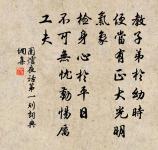 教子弟於幼時
便當有正大光明
氣象
檢身心於平日
不可無憂勤惕厲
工夫
圍爐夜話第一則詞典
網集